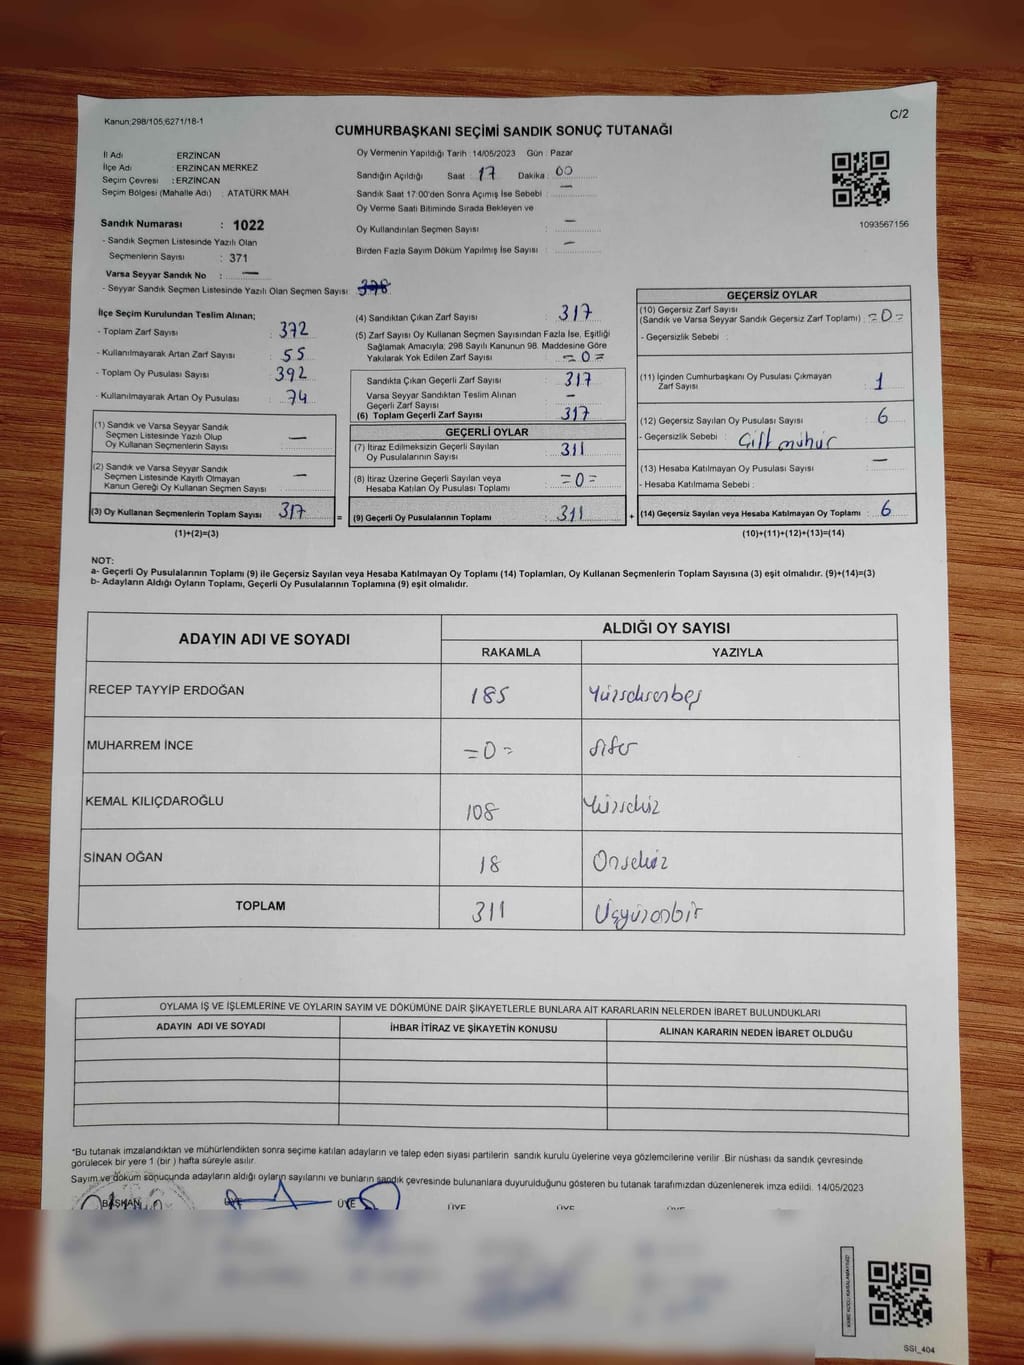 Kanun:298/105,6271/18-1
C/2
CUMHURBAŞKANI SEÇİMİ SANDIK SONUÇ TUTANAĞI
İl Adı : ERZİNCAN
İlçe Adı : ERZİNCAN MERKEZ
Seçim Çevresi : ERZİNCAN
Seçim Bölgesi (Mahalle Adı) : ATATÜRK MAH.
Sandık Numarası : 1022
- Sandık Seçmen Listesinde Yazılı Olan
Seçmenlerin Sayısı : 371
Varsa Seyyar Sandık No : —
- Seyyar Sandık Seçmen Listesinde Yazılı Olan Seçmen Sayısı:
Oy Vermenin Yapıldığı Tarih : 14/05/2023 Gün : Pazar
Sandığın Açıldığı Saat : 17 Dakika : 00
Sandık Saat 17:00'den Sonra Açımış İse Sebebi : —
Oy Verme Saati Bitiminde Sırada Bekleyen ve
Oy Kullandırılan Seçmen Sayısı : —
Birden Fazla Sayım Döküm Yapılmış İse Sayısı : —
1093567156
İlçe Seçim Kurulundan Teslim Alınan;
- Toplam Zarf Sayısı : 372
- Kullanılmayarak Artan Zarf Sayısı : 55
- Toplam Oy Pusulası Sayısı : 392
- Kullanılmayarak Artan Oy Pusulası : 74
(1) Sandık ve Varsa Seyyar Sandık
Seçmen Listesinde Yazılı Olup
Oy Kullanan Seçmenlerin Sayısı : —
(2) Sandık ve Varsa Seyyar Sandık
Seçmen Listesinde Kayıtlı Olmayan
Kanun Gereği Oy Kullanan Seçmen Sayısı : —
(3) Oy Kullanan Seçmenlerin Toplam Sayısı : 317
(1)+(2)=(3)
(4) Sandıktan Çıkan Zarf Sayısı : 317
(5) Zarf Sayısı Oy Kullanan Seçmen Sayısından Fazla İse, Eşitliği
Sağlamak Amacıyla; 298 Sayılı Kanunun 98. Maddesine Göre
Yakılarak Yok Edilen Zarf Sayısı : =0=
Sandıkta Çıkan Geçerli Zarf Sayısı : 317
Varsa Seyyar Sandıktan Teslim Alınan
Geçerli Zarf Sayısı : —
(6) Toplam Geçerli Zarf Sayısı : 317
GEÇERLİ OYLAR
(7) İtiraz Edilmeksizin Geçerli Sayılan
Oy Pusulalarının Sayısı : 311
(8) İtiraz Üzerine Geçerli Sayılan veya
Hesaba Katılan Oy Pusulası Toplamı : =0=
= (9) Geçerli Oy Pusulalarının Toplamı : 311
GEÇERSİZ OYLAR
(10) Geçersiz Zarf Sayısı
(Sandık ve Varsa Seyyar Sandık Geçersiz Zarf Toplamı) : =0=
- Geçersizlik Sebebi :
(11) İçinden Cumhurbaşkanı Oy Pusulası Çıkmayan
Zarf Sayısı : 1
(12) Geçersiz Sayılan Oy Pusulası Sayısı : 6
- Geçersizlik Sebebi : Çift mühür
(13) Hesaba Katılmayan Oy Pusulası Sayısı : —
- Hesaba Katılmama Sebebi :
+ (14) Geçersiz Sayılan veya Hesaba Katılmayan Oy Toplamı : 6
(10)+(11)+(12)+(13)=(14)
NOT:
a- Geçerli Oy Pusulalarının Toplamı (9) ile Geçersiz Sayılan veya Hesaba Katılmayan Oy Toplamı (14) Toplamları, Oy Kullanan Seçmenlerin Toplam Sayısına (3) eşit olmalıdır. (9)+(14)=(3)
b- Adayların Aldığı Oyların Toplamı, Geçerli Oy Pusulalarının Toplamına (9) eşit olmalıdır.
ADAYIN ADI VE SOYADI ALDIĞI OY SAYISI
RAKAMLA YAZIYLA
RECEP TAYYİP ERDOĞAN 185 Yüzseksenbeş
MUHARREM İNCE =0= sıfır
KEMAL KILIÇDAROĞLU 108 Yüzsekiz
SİNAN OĞAN 18 Onsekiz
TOPLAM 311 Üçyüzonbir
OYLAMA İŞ VE İŞLEMLERİNE VE OYLARIN SAYIM VE DÖKÜMÜNE DAİR ŞİKAYETLERLE BUNLARA AİT KARARLARIN NELERDEN İBARET BULUNDUKLARI
ADAYIN ADI VE SOYADI İHBAR İTİRAZ VE ŞİKAYETİN KONUSU ALINAN KARARIN NEDEN İBARET OLDUĞU
*Bu tutanak imzalandıktan ve mühürlendikten sonra seçime katılan adayların ve talep eden siyasi partilerin sandık kurulu üyelerine veya gözlemcilerine verilir .Bir nüshası da sandık çevresinde
görülecek bir yere 1 (bir ) hafta süreyle asılır.
Sayım ve döküm sonucunda adayların aldığı oyların sayılarını ve bunların sandık çevresinde bulunanlara duyurulduğunu gösteren bu tutanak tarafımızdan düzenlenerek imza edildi. 14/05/2023
BAŞKAN ÜYE ÜYE ÜYE ÜYE ÜYE
SSİ_404